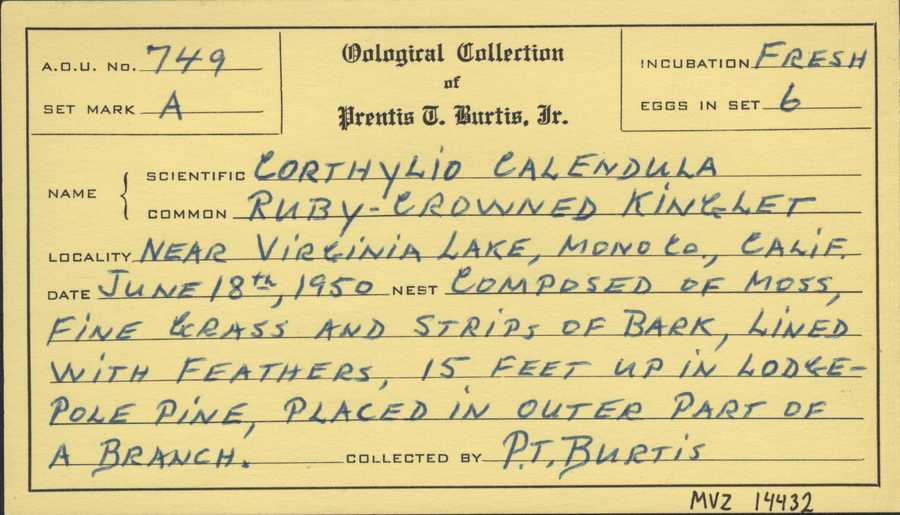 A.O.U. No. 749
SET MARK A
Oological Collection
of
Prentis T. Burtis, Jr.
INCUBATION FRESH
EGGS IN SET 6
NAME { SCIENTIFIC CORTHYLIO CALENDULA
COMMON RUBY-CROWNED KINGLET
LOCALITY NEAR VIRGINIA LAKE, MONO CO., CALIF.
DATE JUNE 18th, 1950 NEST COMPOSED OF MOSS,
FINE GRASS AND STRIPS OF BARK, LINED
WITH FEATHERS, 15 FEET UP IN LODGE-
POLE PINE, PLACED IN OUTER PART OF
A BRANCH. COLLECTED BY P.T. BURTIS
MVZ 14432